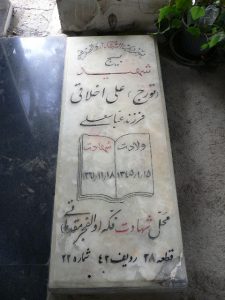 بسیج
شهید
(تورج) علی اخلاقی
فرزند عباسعلی
ولادت شهادت
۱۳۴۵/۱/۵ ۱۳۶۱/۱۱/۱۸
محل شهادت فکه والفجر مقدماتی
قطعه ۲۸ ردیف ۴۲ شماره ۲۲